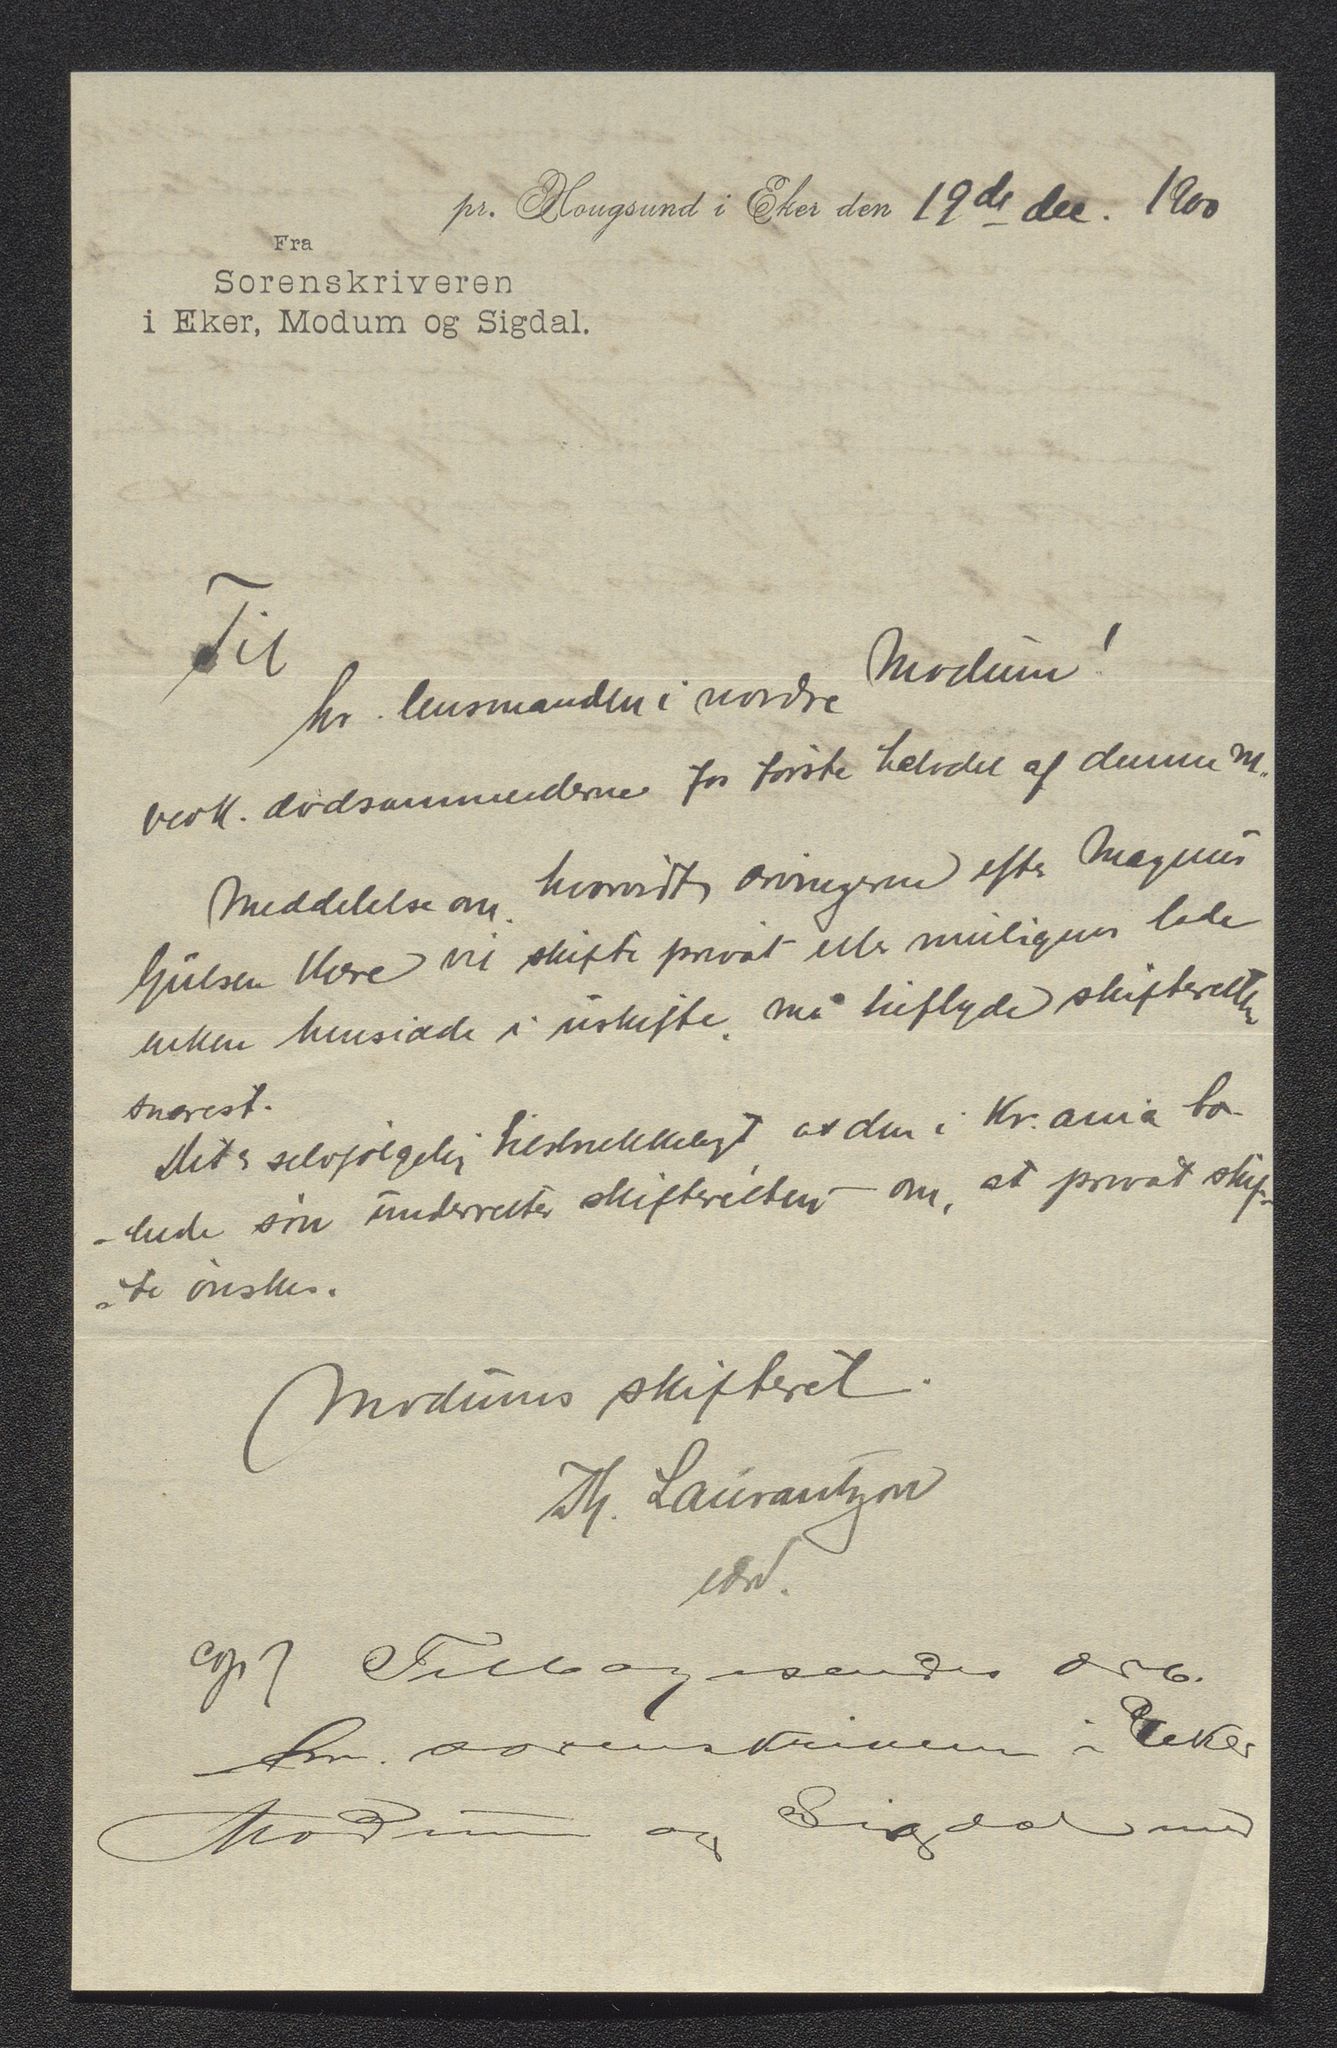 pr. Hougsund i Eker den 19de dec. 1900
Fra
Sorenskriveren
i Eker, Modum og Sigdal.
Til
hr. lensmanden i nordre Modum!
vedk. dødsanmelderne for første halvdel af denne m.
Meddelelse om, hvorvidt arvingerne efter Magnus
Gulsen Kere vil skifte privat eller muligens lade
enken hensidde i uskifte, må tilflyde skifteretten
snarest.
Det er selvfølgelig tilstrækkeligt at den i Kr.ania bo-
-ende søn underretter skifteretten om, at privat skif-
-te ønskes.
Modums skifteret.
Th. Laurantzon
edv.
cop. Tilbagesendes
hr. sorenskriveren i Eker
Modum og Sigdal med